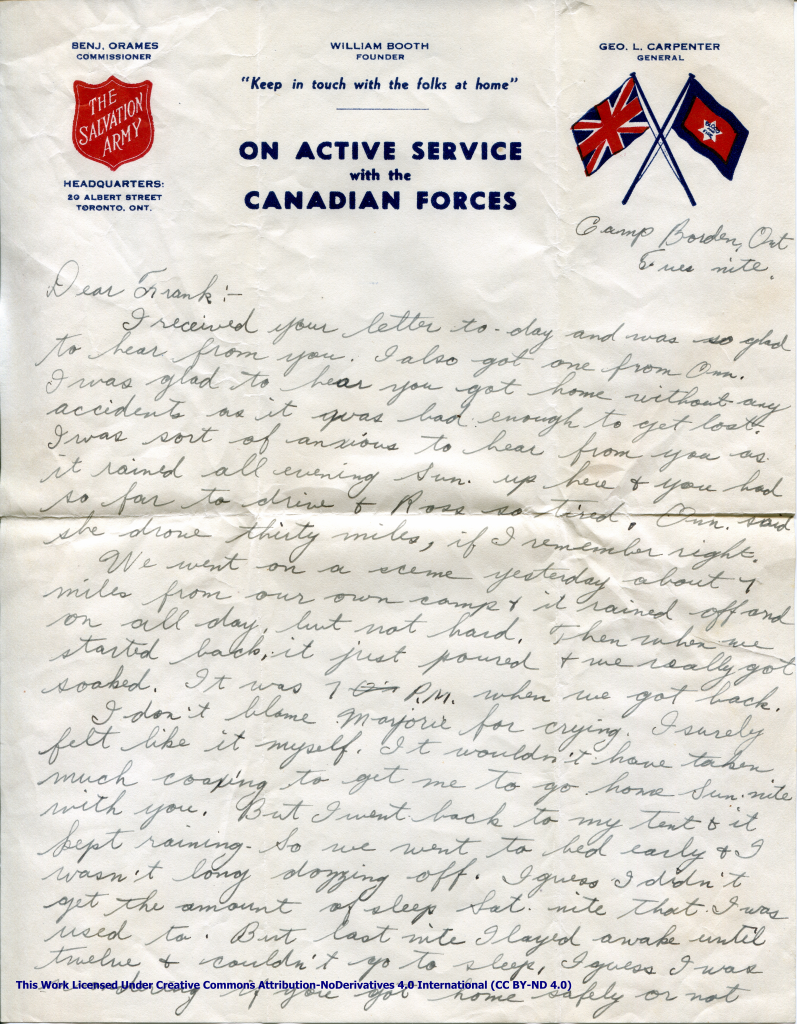 BENJ. ORAMES
COMMISSIONER
WILLIAM BOOTH
FOUNDER
GEO. L. CARPENTER
GENERAL
"Keep in touch with the folks at home"
THE
SALVATION
ARMY
ON ACTIVE SERVICE
with the
CANADIAN FORCES
HEADQUARTERS:
20 ALBERT STREET
TORONTO, ONT.
Camp Borden, Ont
Tues nite.
Dear Frank:-
I received your letter to-day and was so glad
to hear from you. I also got one from Ann.
I was glad to hear you got home without any
accidents as it was bad enough to get lost.
I was sort of anxious to hear from you as
it rained all evening Sun. up here & you had
so far to drive & Ross so tired. Ann. said
she drove thirty miles, if I remember right.
We went on a sceme yesterday about 7
miles from our own camp & it rained off and
on all day, but not hard. Then when we
started back, it just poured & we really got
soaked. It was 7 P.M. when we got back.
I don't blame Marjorie for crying. I surely
felt like it myself. It wouldn't have taken
much coaxing to get me to go home Sun. nite
with you. But I went back to my tent & it
kept raining. So we went to bed early & I
wasn't long dozzing off. I guess I didn't
get the amount of sleep Sat. nite that I was
used to. But last nite I layed awake until
twelve & couldn't go to sleep, I guess I was
wondering if you got home safely or not
This Work Licensed Under Creative Commons Attribution-NoDerivatives 4.0 International (CC BY-ND 4.0)